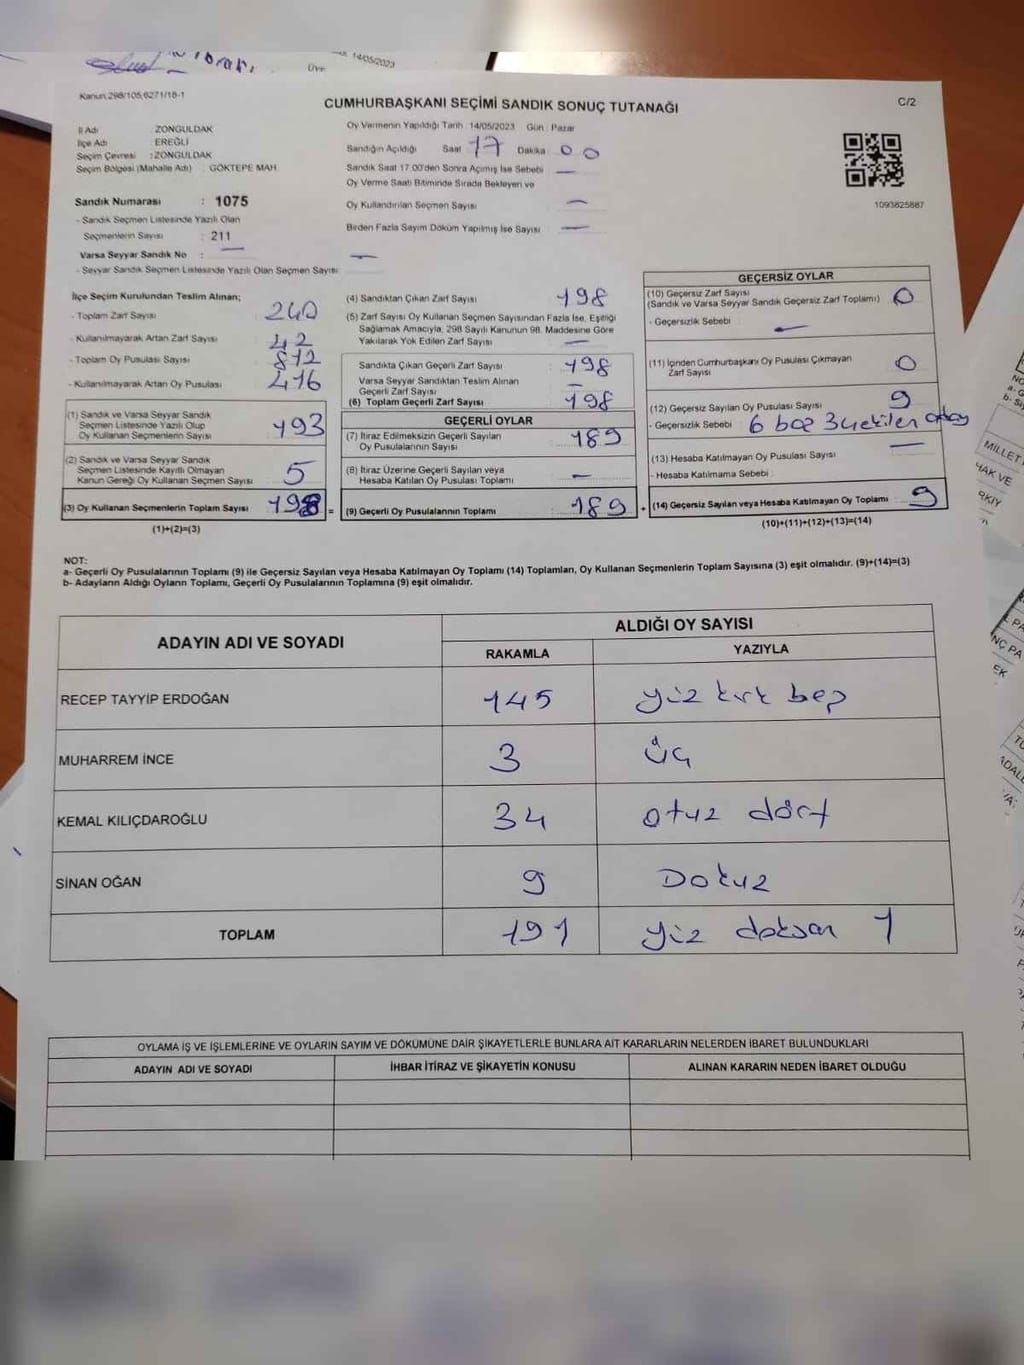 14/05/2023
Üye
Kanun 298/105,6271/18-1
CUMHURBAŞKANI SEÇİMİ SANDIK SONUÇ TUTANAĞI
C/2
İl Adı ZONGULDAK
İlçe Adı EREĞLİ
Seçim Çevresi : ZONGULDAK
Seçim Bölgesi (Mahalle Adı) : GÖKTEPE MAH
Oy Vermenin Yapıldığı Tarih : 14/05/2023 Gün : Pazar
Sandığın Açıldığı Saat 17 Dakika 00
Sandık Saat 17.00'den Sonra Açılmış İse Sebebi —
Oy Verme Saati Bitiminde Sırada Bekleyen ve
Oy Kullandırılan Seçmen Sayısı —
Birden Fazla Sayım Döküm Yapılmış İse Sayısı —
1093625887
Sandık Numarası : 1075
- Sandık Seçmen Listesinde Yazılı Olan
Seçmenlerin Sayısı : 211
Varsa Seyyar Sandık No : —
- Seyyar Sandık Seçmen Listesinde Yazılı Olan Seçmen Sayısı : —
İlçe Seçim Kurulundan Teslim Alınan;
- Toplam Zarf Sayısı 240
- Kullanılmayarak Artan Zarf Sayısı 42
- Toplam Oy Pusulası Sayısı
- Kullanılmayarak Artan Oy Pusulası 416
(1) Sandık ve Varsa Seyyar Sandık
Seçmen Listesinde Yazılı Olup
Oy Kullanan Seçmenlerin Sayısı 193
(2) Sandık ve Varsa Seyyar Sandık
Seçmen Listesinde Kayıtlı Olmayan
Kanun Gereği Oy Kullanan Seçmen Sayısı 5
(3) Oy Kullanan Seçmenlerin Toplam Sayısı 198 =
(1)+(2)=(3)
(4) Sandıktan Çıkan Zarf Sayısı 198
(5) Zarf Sayısı Oy Kullanan Seçmen Sayısından Fazla İse, Eşitliği
Sağlamak Amacıyla, 298 Sayılı Kanunun 98. Maddesine Göre
Yakılarak Yok Edilen Zarf Sayısı —
Sandıkta Çıkan Geçerli Zarf Sayısı : 198
Varsa Seyyar Sandıktan Teslim Alınan
Geçerli Zarf Sayısı —
(6) Toplam Geçerli Zarf Sayısı 198
GEÇERLİ OYLAR
(7) İtiraz Edilmeksizin Geçerli Sayılan
Oy Pusulalarının Sayısı 189
(8) İtiraz Üzerine Geçerli Sayılan veya
Hesaba Katılan Oy Pusulası Toplamı —
(9) Geçerli Oy Pusulalarının Toplamı 189 +
GEÇERSİZ OYLAR
(10) Geçersiz Zarf Sayısı
(Sandık ve Varsa Seyyar Sandık Geçersiz Zarf Toplamı) 0
- Geçersizlik Sebebi : —
(11) İçinden Cumhurbaşkanı Oy Pusulası Çıkmayan
Zarf Sayısı 0
(12) Geçersiz Sayılan Oy Pusulası Sayısı 9
- Geçersizlik Sebebi : 6 boş 3
(13) Hesaba Katılmayan Oy Pusulası Sayısı —
- Hesaba Katılmama Sebebi :
(14) Geçersiz Sayılan veya Hesaba Katılmayan Oy Toplamı : 9
(10)+(11)+(12)+(13)=(14)
NOT:
a- Geçerli Oy Pusulalarının Toplamı (9) ile Geçersiz Sayılan veya Hesaba Katılmayan Oy Toplamı (14) Toplamları, Oy Kullanan Seçmenlerin Toplam Sayısına (3) eşit olmalıdır. (9)+(14)=(3)
b- Adayların Aldığı Oyların Toplamı, Geçerli Oy Pusulalarının Toplamına (9) eşit olmalıdır.
ADAYIN ADI VE SOYADI
ALDIĞI OY SAYISI
RAKAMLA YAZIYLA
RECEP TAYYİP ERDOĞAN 145 yüz kırk beş
MUHARREM İNCE 3 üç
KEMAL KILIÇDAROĞLU 34 otuz dört
SİNAN OĞAN 9 Dokuz
TOPLAM 191 yüz doksan 1
OYLAMA İŞ VE İŞLEMLERİNE VE OYLARIN SAYIM VE DÖKÜMÜNE DAİR ŞİKAYETLERLE BUNLARA AİT KARARLARIN NELERDEN İBARET BULUNDUKLARI
ADAYIN ADI VE SOYADI İHBAR İTİRAZ VE ŞİKAYETİN KONUSU ALINAN KARARIN NEDEN İBARET OLDUĞU
MİLLET
HAK VE